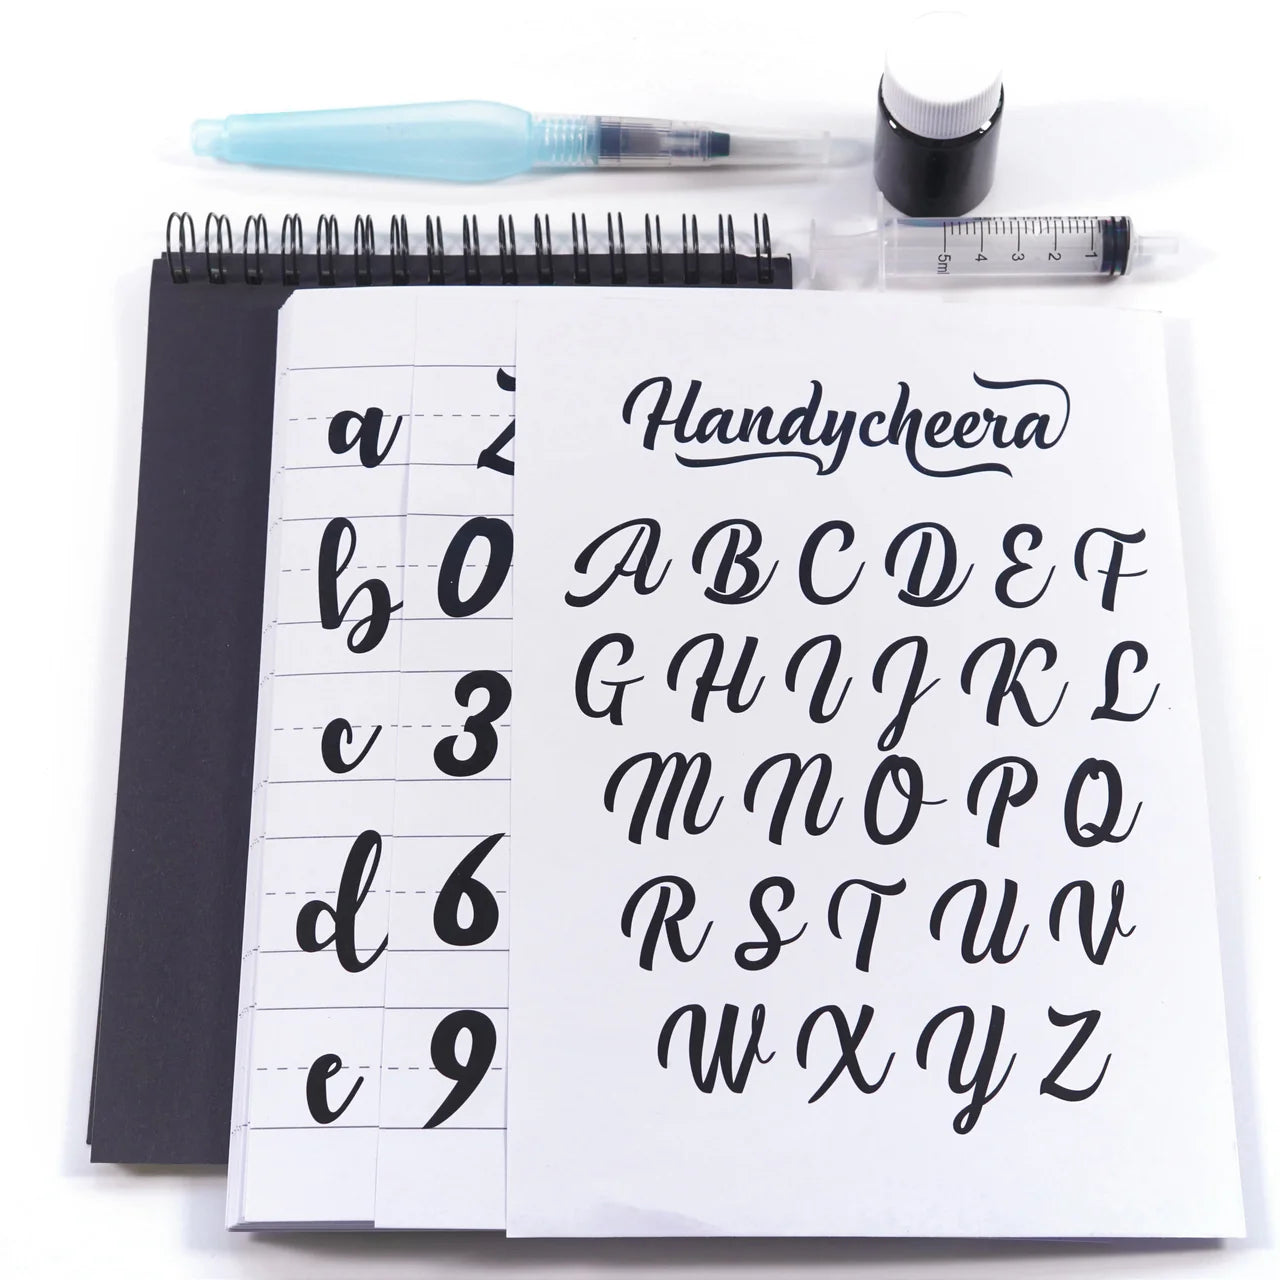 5ml 4 3 2 1
a
b
c
d
e
Z
0
3
6
9
Handycheera
A B C D E F
G H I J K L
M N O P Q
R S T U V
W X Y Z